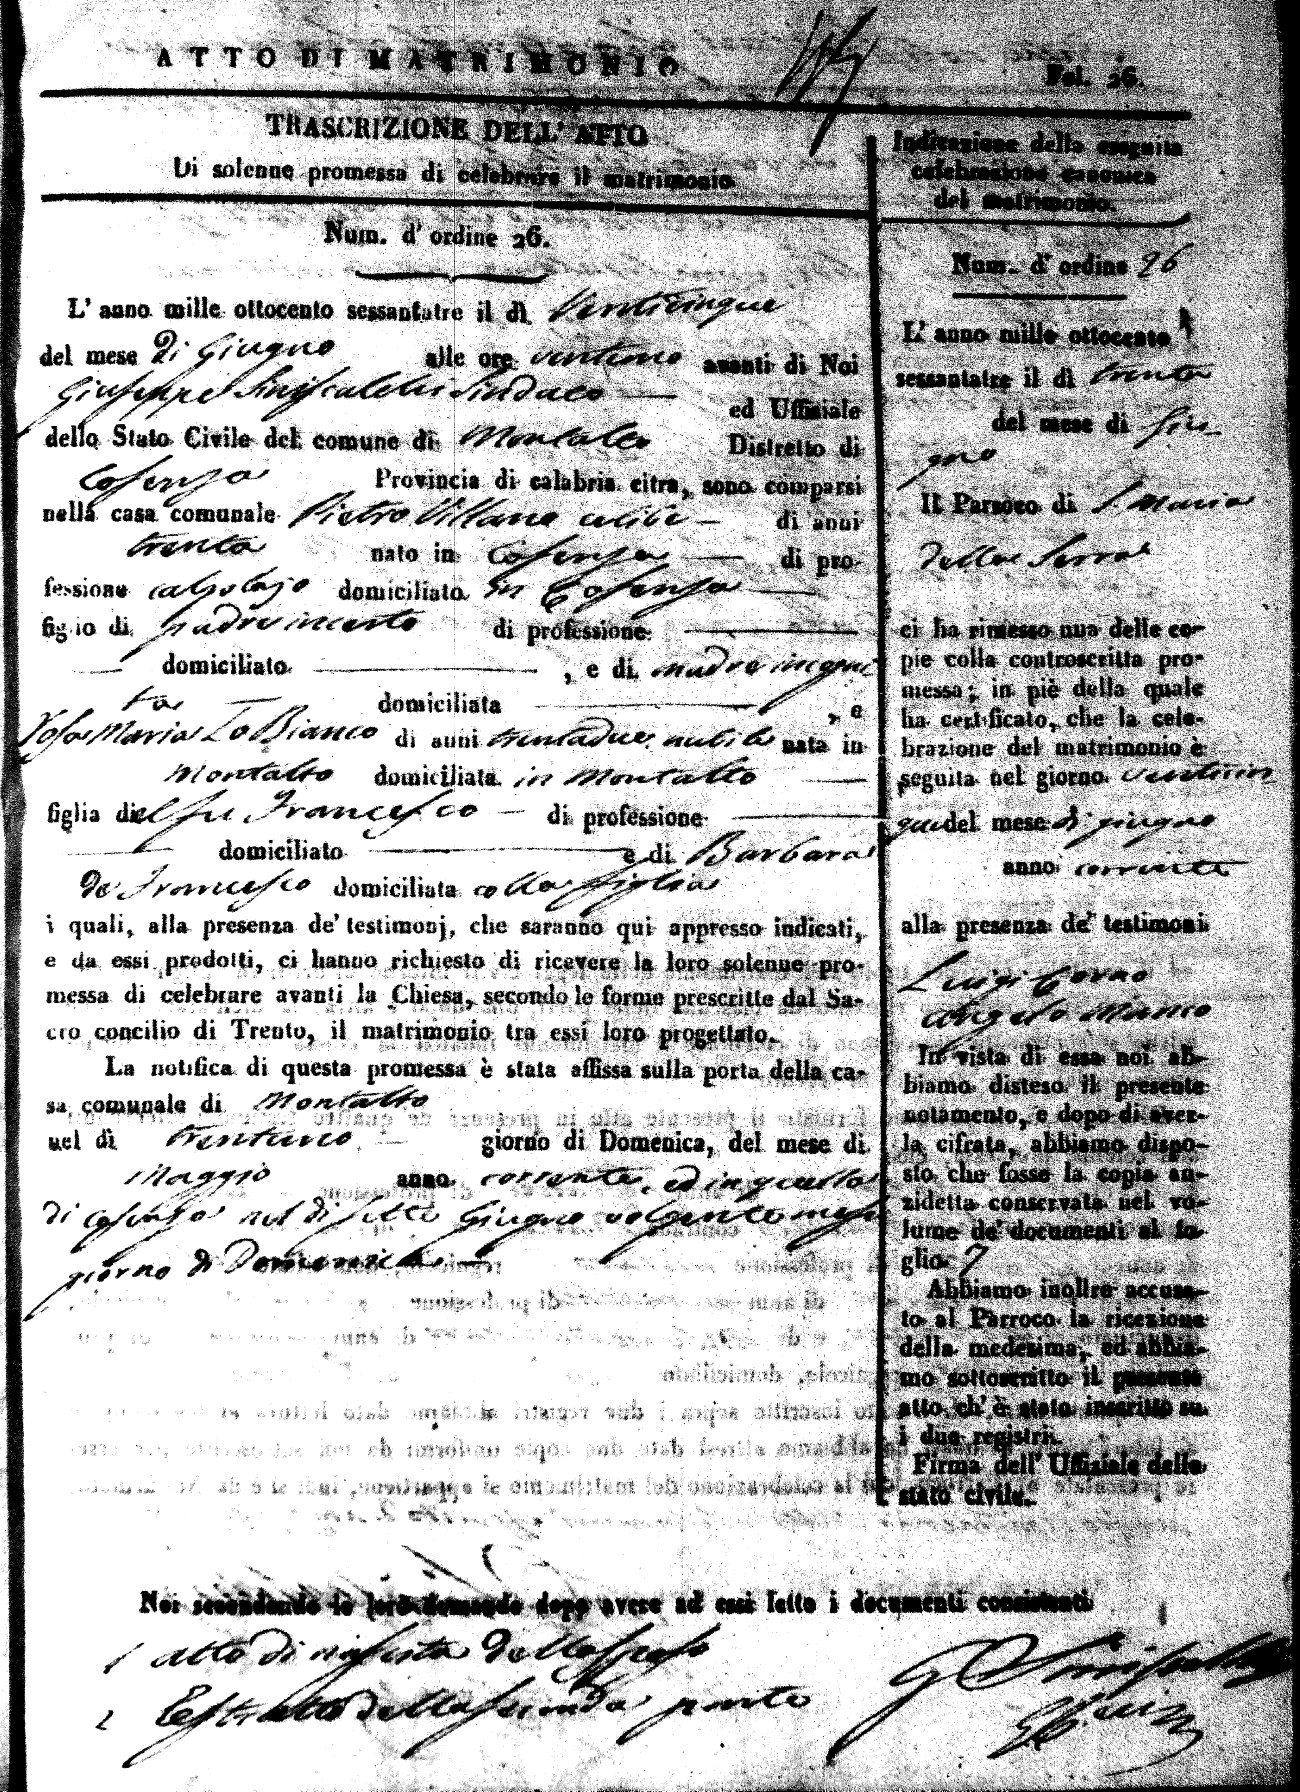 ATTO DI MATRIMONIO
Fol. 26.
TRASCRIZIONE DELL' ATTO
Di solenne promessa di celebrare il matrimonio
Num. d' ordine 26.
L' anno mille ottocento sessantatre il dì Venticinque
del mese di Giugno alle ore ventuno avanti di Noi
Giuseppe Siniscalchi Sindaco ed Uffiziale
dello Stato Civile del comune di Montalto Distretto di
Cosenza Provincia di calabria citra, sono comparsi
nella casa comunale Pietro Villano celibe di anni
trenta nato in Cosenza di pro-
fessione calzolajo domiciliato in Cosenza
figlio di padre incerto di professione
domiciliato , e di madre ingni
ta domiciliata , e
Rosa Maria Lo Bianco di anni trentadue nubile nata in
Montalto domiciliata in Montalto
figlia del fu Francesco di professione
domiciliato e di Barbara
de Francesco domiciliata colla figlia
i quali, alla presenza de' testimonj, che saranno qui appresso indicati,
e da essi prodotti, ci hanno richiesto di ricevere la loro solenne pro-
messa di celebrare avanti la Chiesa, secondo le forme prescritte dal Sa-
cro concilio di Trento, il matrimonio tra essi loro progettato.
La notifica di questa promessa è stata affissa sulla porta della ca-
sa comunale di Montalto
nel dì trentuno giorno di Domenica, del mese di
Maggio anno corrente, ed in quella
di Cosenza nel dì sette Giugno volgente mese
giorno di Domenica
Indicazione della eseguita
celebrazione canonica
del matrimonio.
Num. d' ordine 26
L' anno mille ottocento
sessantatre il dì trenta
del mese di Giu
gno
Il Parroco di S. Maria
della Serra
ci ha rimesso una delle co-
pie colla controscritta pro-
messa; in piè della quale
ha certificato, che la cele-
brazione del matrimonio è
seguita nel giorno venticin
que del mese di giugno
anno corrente
alla presenza de' testimoni
Luigi Corno
Angelo Manco
In vista di essa noi ab-
biamo disteso il presente
notamento, e dopo di aver-
la cifrata, abbiamo dispo-
sto che fosse la copia an-
zidetta conservata nel vo-
lume de' documenti al fo-
glio 7
Abbiamo inoltre accusa-
to al Parroco la ricezione
della medesima, ed abbia-
mo sottoscritto il presente
atto ch' è stato inscritto su
i due registri.
Firma dell' Uffiziale dello
stato civile.
Noi secondando le loro domande dopo avere ad essi letto i documenti consistenti
1 atto di nascita dello sposo
2 Estratto della seconda parte
G Siniscalchi